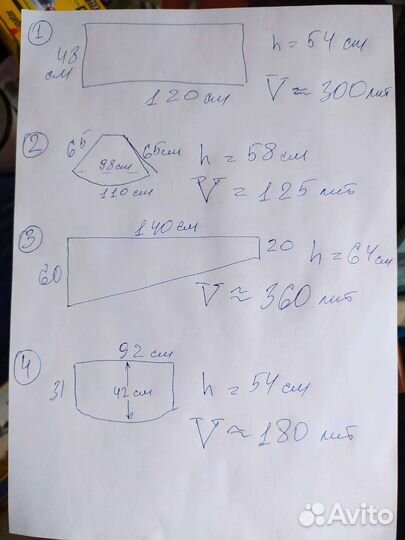 1
48 см
120 см
h = 54 см
V ≈ 300 лит
2
65
65 см
98 см
110 см
h = 58 см
V = 125 лит
3
140 см
60
20
h = 64 см
V ≈ 360 лит
4
92 см
31
42 см
h = 54 см
V ≈ 180 лит
Avito